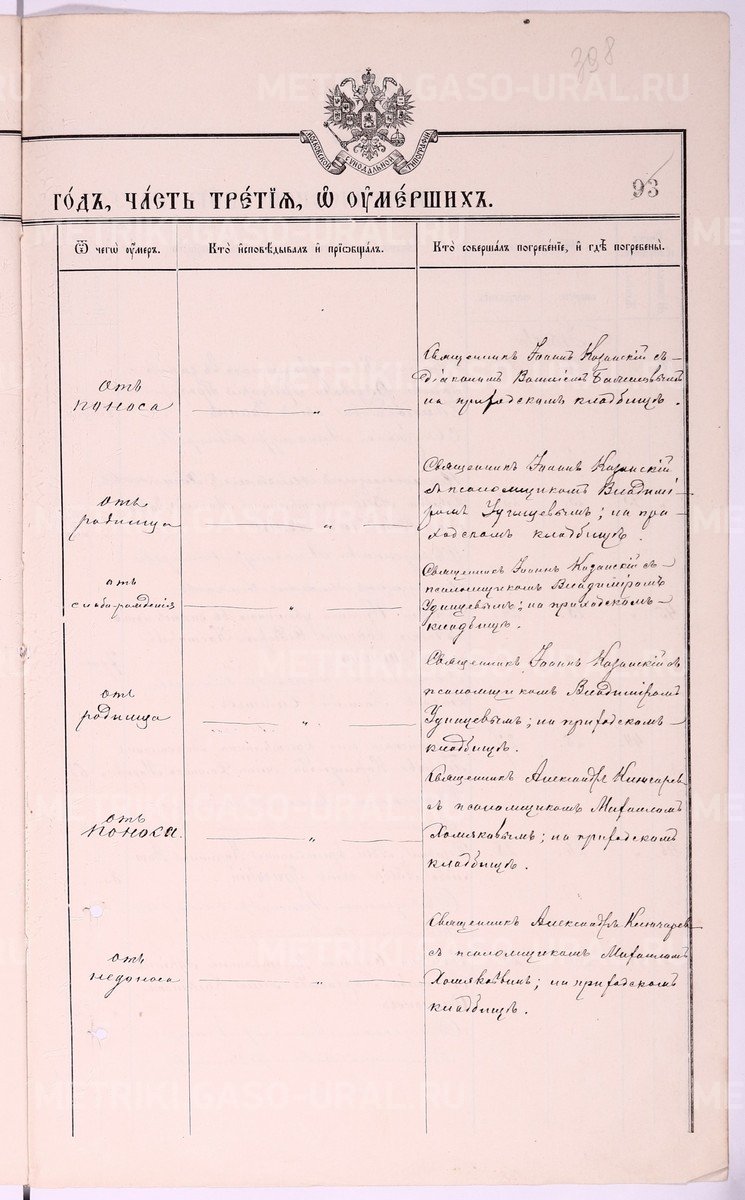 398
METRIKI.GASO-URAL.RU
МОСКОВСКОЙ СѴНОДАЛЬНОЙ ТИПОГРАФІИ
93
го́дъ, ча́сть тре́тїѧ, ѡ҆ ᲂу҆ме́ршихъ.
Ѿ чегѡ̀ ᲂу҆́меръ.
Кто̀ и҆сповѣ́дывалъ и҆ прїѡбща́лъ.
Кто̀ соверша́лъ погребе́нїе, и҆ гдѣ̀ погребены̀.
отъ
поноса
Священникъ Іоаннъ Казанскій съ
діакономъ
на приходскомъ кладбищѣ.
отъ
родимца
Священникъ Іоаннъ Казанскій
съ псаломщикомъ Владимі-
ромъ Удинцевымъ; на при-
ходскомъ кладбищѣ.
отъ
слабо-рожденія
Священникъ Іоаннъ Казанскій съ
псаломщикомъ Владиміромъ
Удинцевымъ; на приходскомъ
кладбищѣ.
отъ
родимца
Священникъ Іоаннъ Казанскій съ
псаломщикомъ Владиміромъ
Удинцевымъ; на приходскомъ
кладбищѣ.
отъ
поноса.
Священникъ Александръ
съ псаломщикомъ Михаиломъ
Хомяковымъ; на приходскомъ
кладбищѣ.
отъ
недоноса
Священникъ Александръ
съ псаломщикомъ Михаиломъ
Хомяковымъ; на приходскомъ
кладбищѣ.